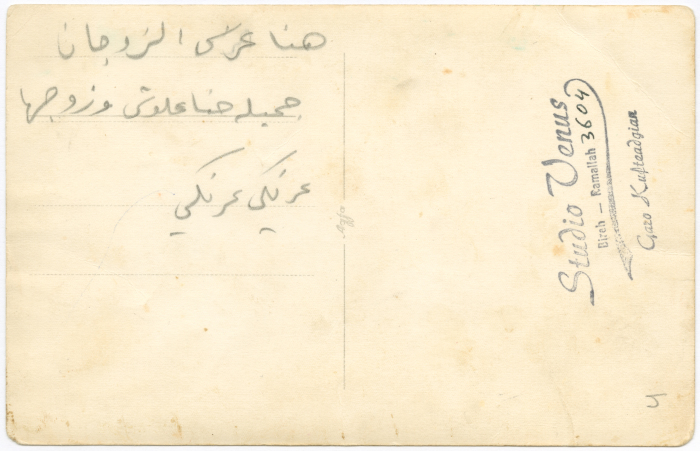 هنا عرس الزوجان
جميله حنا علوش وزوجها
عرنكي عرنكي
Studio Venus
Bireh — Ramallah 3604
Garo Kuftaadgian
4